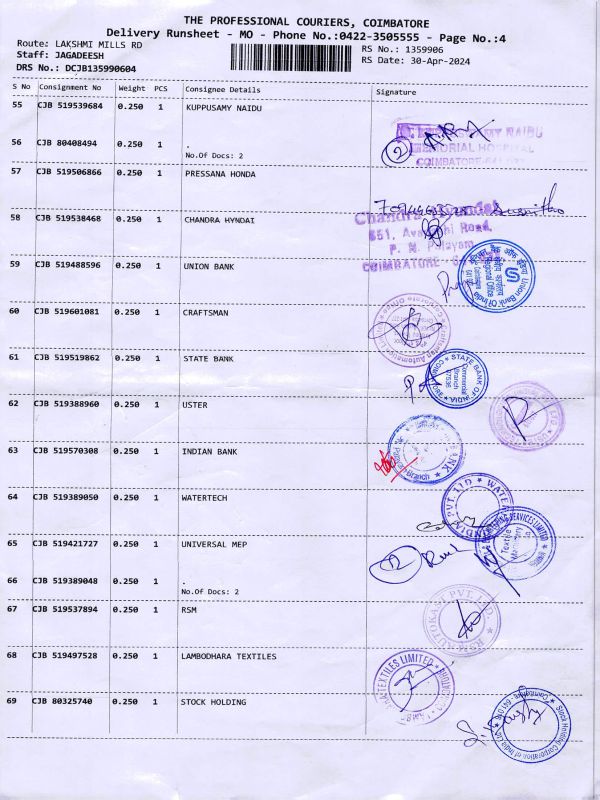 THE PROFESSIONAL COURIERS, COIMBATORE
Delivery Runsheet - MO - Phone No.:0422-3505555 - Page No.:4
Route: LAKSHMI MILLS RD
RS No.: 1359906
Staff: JAGADEESH
RS Date: 30-Apr-2024
DRS No.: DCJB135990604
S No Consignment No Weight PCS Consignee Details Signature
55 CJB 519539684 0.250 1 KUPPUSAMY NAIDU
MY NAIDU
MEMORIAL HOSPITAL
COIMBATORE-641 037
56 CJB 80408494 0.250 1 .
No.Of Docs: 2
2
57 CJB 519506866 0.250 1 PRESSANA HONDA
58 CJB 519538468 0.250 1 CHANDRA HYNDAI
Chandra Hyundai
651, Avanashi Road,
P. N. Palayam
COIMBATORE
59 CJB 519488596 0.250 1 UNION BANK
Union Bank Of India
Regional Office
60 CJB 519601081 0.250 1 CRAFTSMAN
Craftsman Automation Limited
Corporate Office
61 CJB 519519862 0.250 1 STATE BANK
STATE BANK OF INDIA
Commercial
Branch
62 CJB 519388960 0.250 1 USTER
63 CJB 519570308 0.250 1 INDIAN BANK
Branch
64 CJB 519389050 0.250 1 WATERTECH
PVT. LTD
65 CJB 519421727 0.250 1 UNIVERSAL MEP
SERVICES LIMITED
Textile
Machinery
2
66 CJB 519389048 0.250 1 .
No.Of Docs: 2
67 CJB 519537894 0.250 1 RSM
RSM AUTOKAST PVT. LTD.
68 CJB 519497528 0.250 1 LAMBODHARA TEXTILES
TEXTILES LIMITED
69 CJB 80325740 0.250 1 STOCK HOLDING
Stock Holding Corporation of India Ltd.
Coimbatore - 641 018